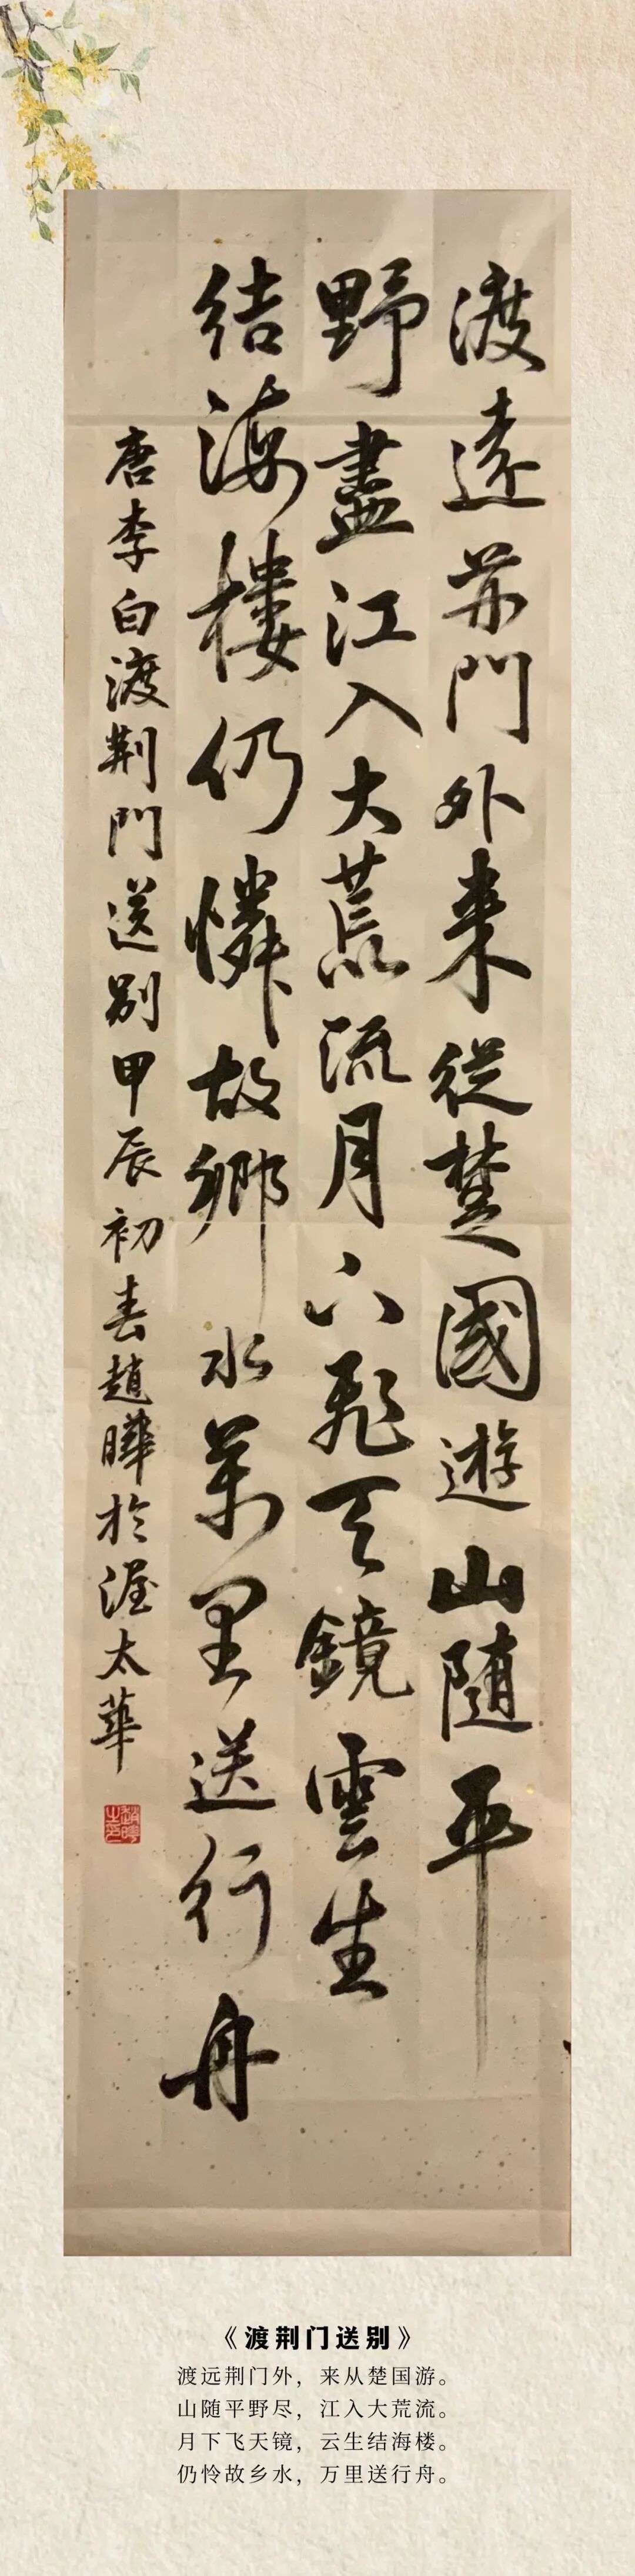 渡遠荊門外来從楚國遊山随平
野盡江入大荒流月下飛天鏡雲生
結海樓仍憐故鄉水萬里送行舟
唐李白渡荆門送别甲辰初春趙曄於渥太華
趙曄之印
《渡荆门送别》
渡远荆门外，来从楚国游。
山随平野尽，江入大荒流。
月下飞天镜，云生结海楼。
仍怜故乡水，万里送行舟。